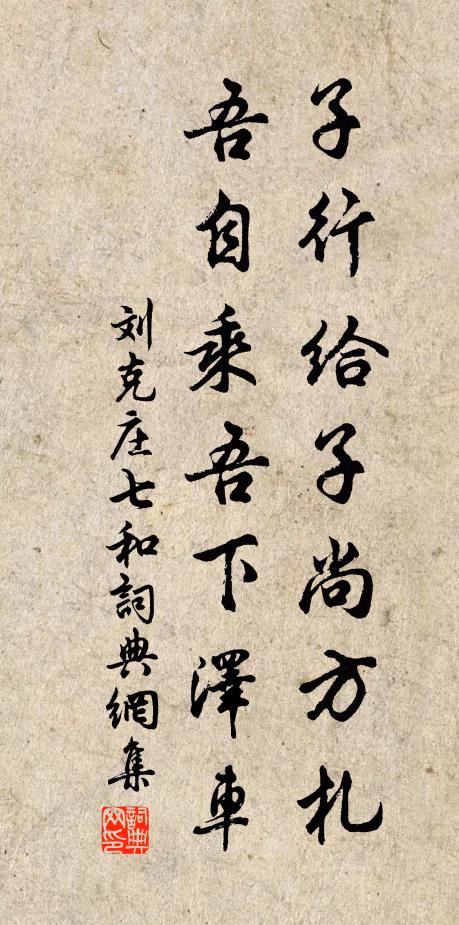 子行给子尚方札
吾自乘吾下澤車
刘克庄七和詞典網集
詞典网印